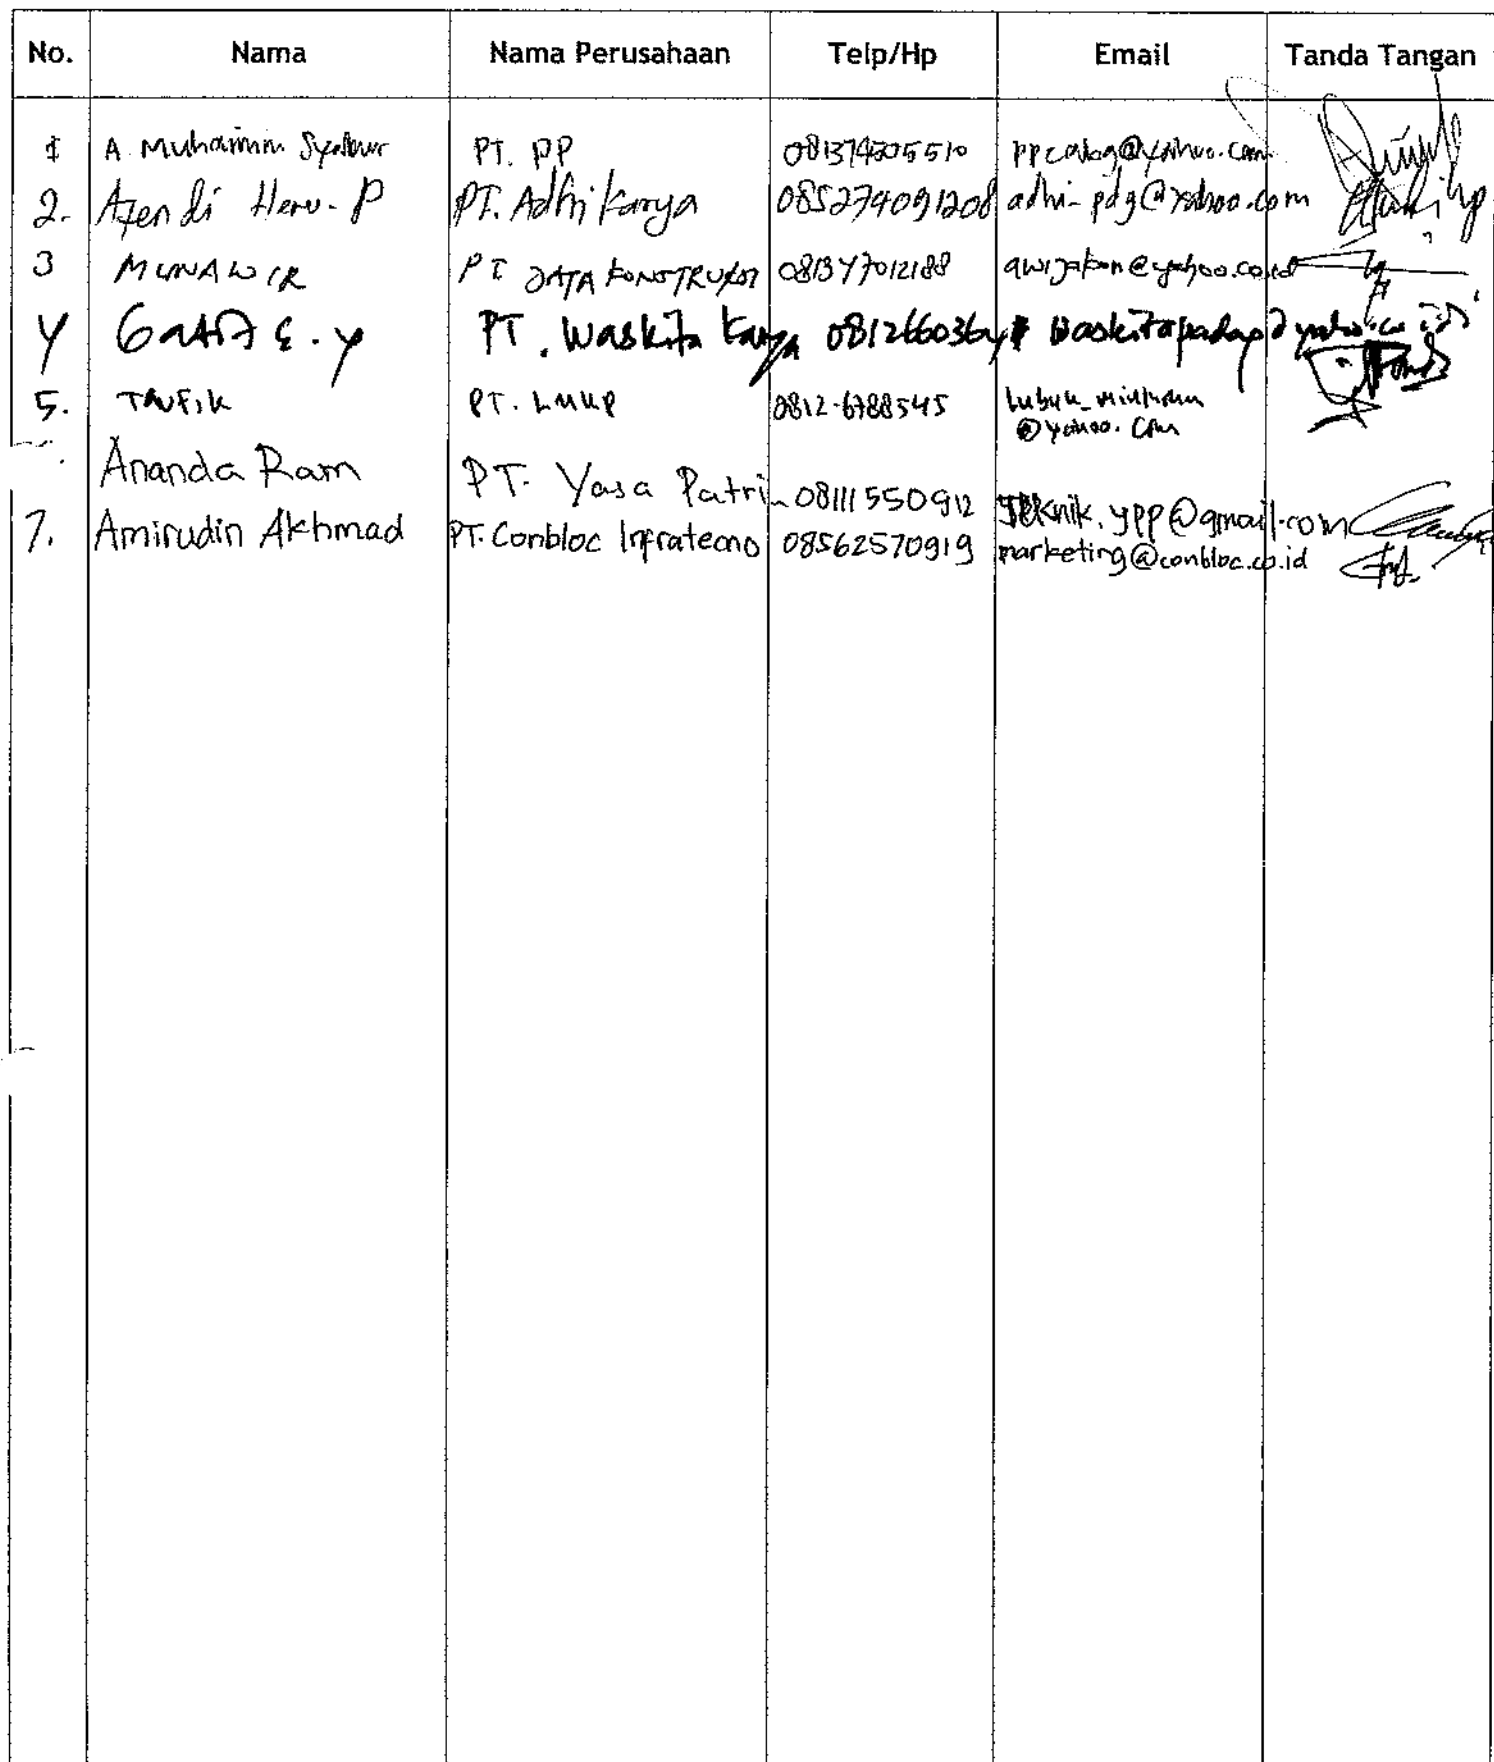 No. Nama Nama Perusahaan Telp/Hp Email Tanda Tangan
1 A. Muhaimin PT. PP 081374305510
2. Afendi Heru. P PT. Adhi Karya 085274091208 adhi-pdg@yahoo.com
3 MUNAWIR PT JAYA KONSTRUKSI 081347012188 awijakon@yahoo.co.id
4 PT. Waskita Karya
5. TAUFIK PT. LMUP 0812-6788545
@yahoo.com
Ananda Ram PT. Yasa Patria 08111550912 teknik.ypp@gmail.com
7. Amirudin Akhmad PT. Conbloc Infratecno 08562570919 marketing@conbloc.co.id